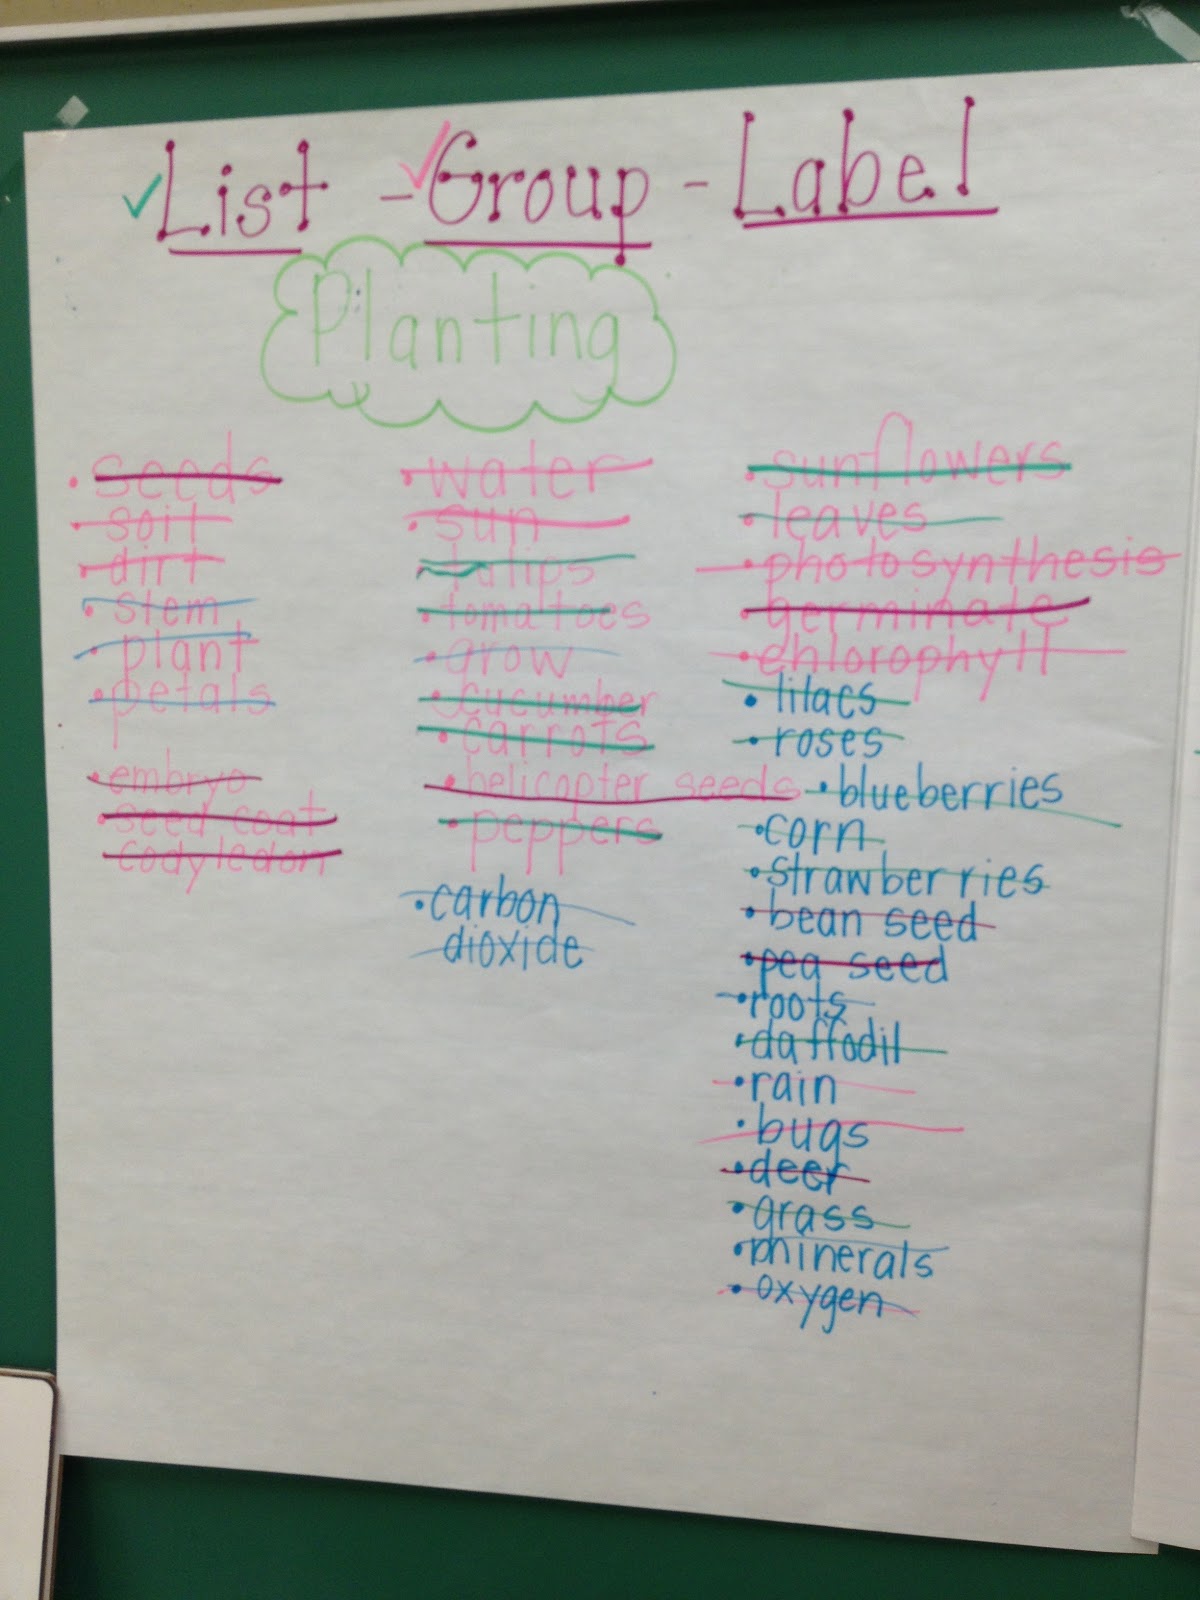 ✓List - ✓Group - Label
Planting
• seeds
• soil
• dirt
• stem
• plant
• petals
• embryo
• seed coat
• codyledon
• water
• sun
• tulips
• tomatoes
• grow
• cucumber
• carrots
• helicopter seeds
• peppers
• carbon
dioxide
• sunflowers
• leaves
• photosynthesis
• germinate
• chlorophyll
• lilacs
• roses
• blueberries
• corn
• strawberries
• bean seed
• pea seed
• roots
• daffodil
• rain
• bugs
• deer
• grass
• minerals
• oxygen